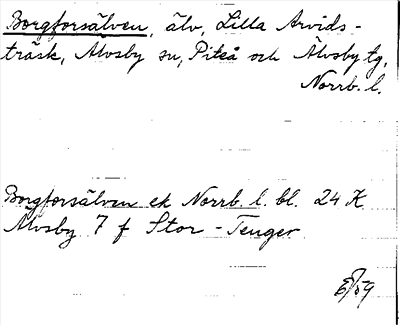 Borgforsälven, älv, Lilla Arvids-
träsk, Älvsby sn, Piteå och Älvsby tg,
Norrb. l.
Borgforsälven ek Norrb. l. bl. 24 K
Älvsby 7 f Stor-Tenger
/59